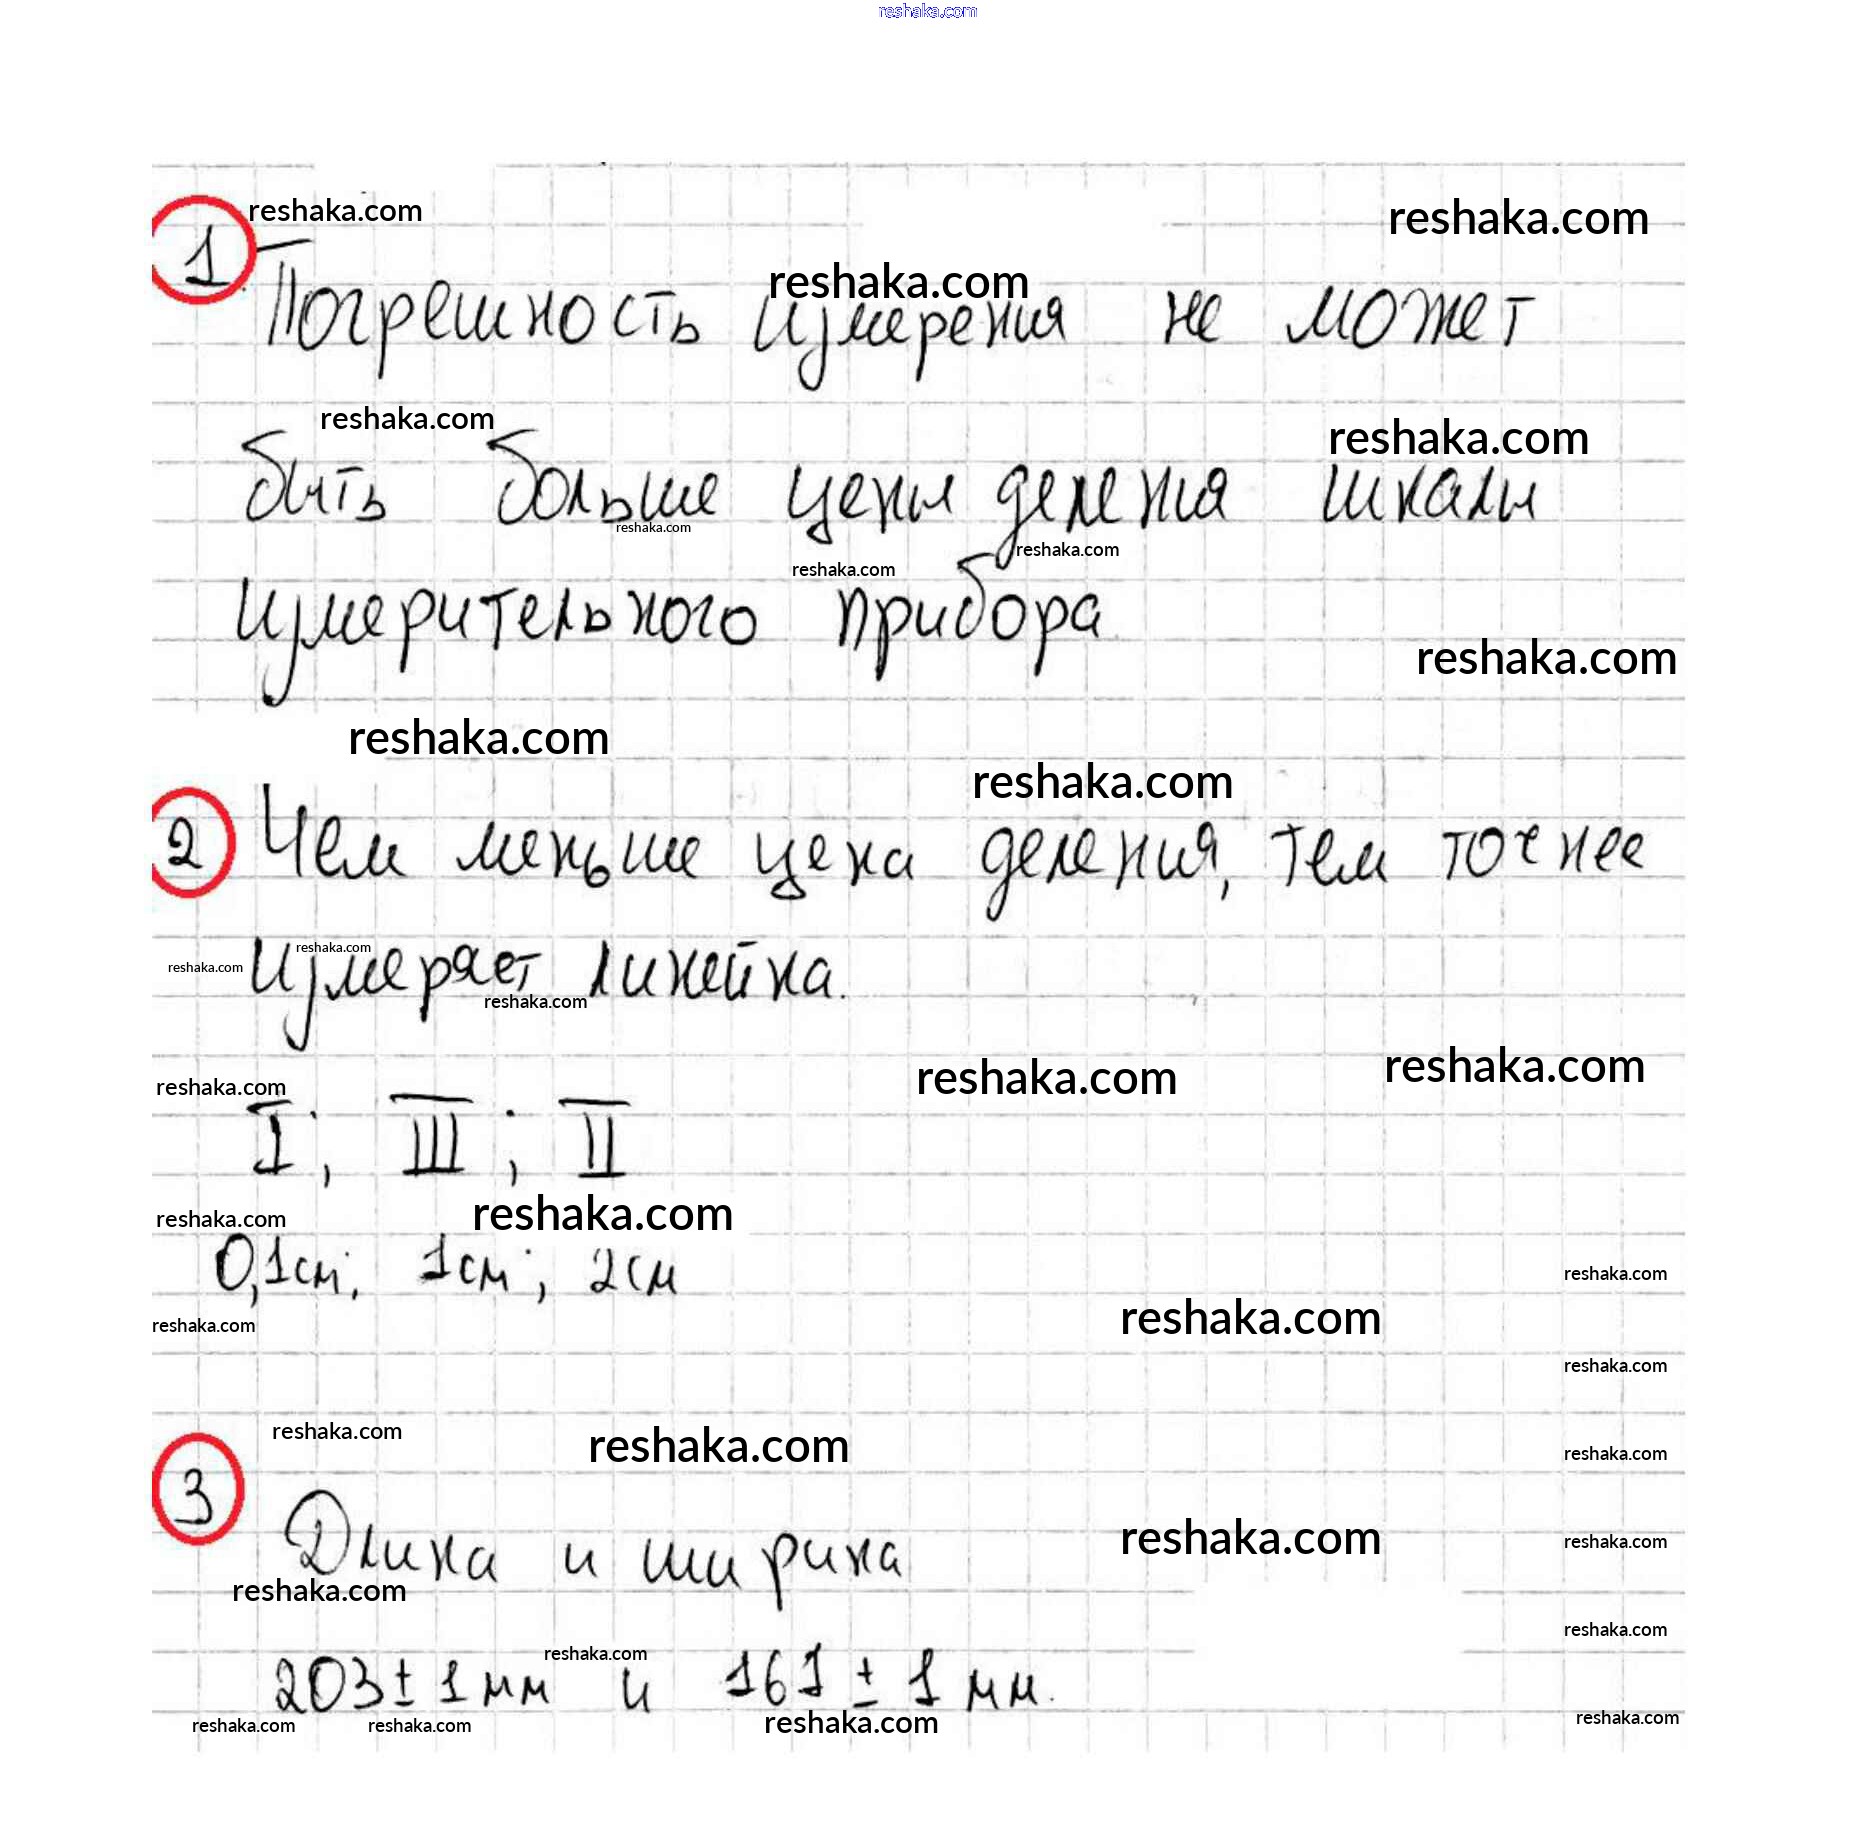 reshaka.com
reshaka.com
reshaka.com
reshaka.com
1 Погрешность измерения не может
reshaka.com
reshaka.com
быть больше цены деления шкалы
reshaka.com
reshaka.com
reshaka.com
измерительного прибора
reshaka.com
reshaka.com
reshaka.com
2 Чем меньше цена деления, тем точнее
reshaka.com
reshaka.com
измеряет линейка.
reshaka.com
reshaka.com
reshaka.com
reshaka.com
I; III; II
reshaka.com
reshaka.com
0,1см; 1см; 2см
reshaka.com
reshaka.com
reshaka.com
reshaka.com
reshaka.com
reshaka.com
reshaka.com
3 Длина и ширина
reshaka.com
reshaka.com
reshaka.com
reshaka.com
reshaka.com
203 ± 1 мм и 161 ± 1 мм.
reshaka.com
reshaka.com
reshaka.com
reshaka.com